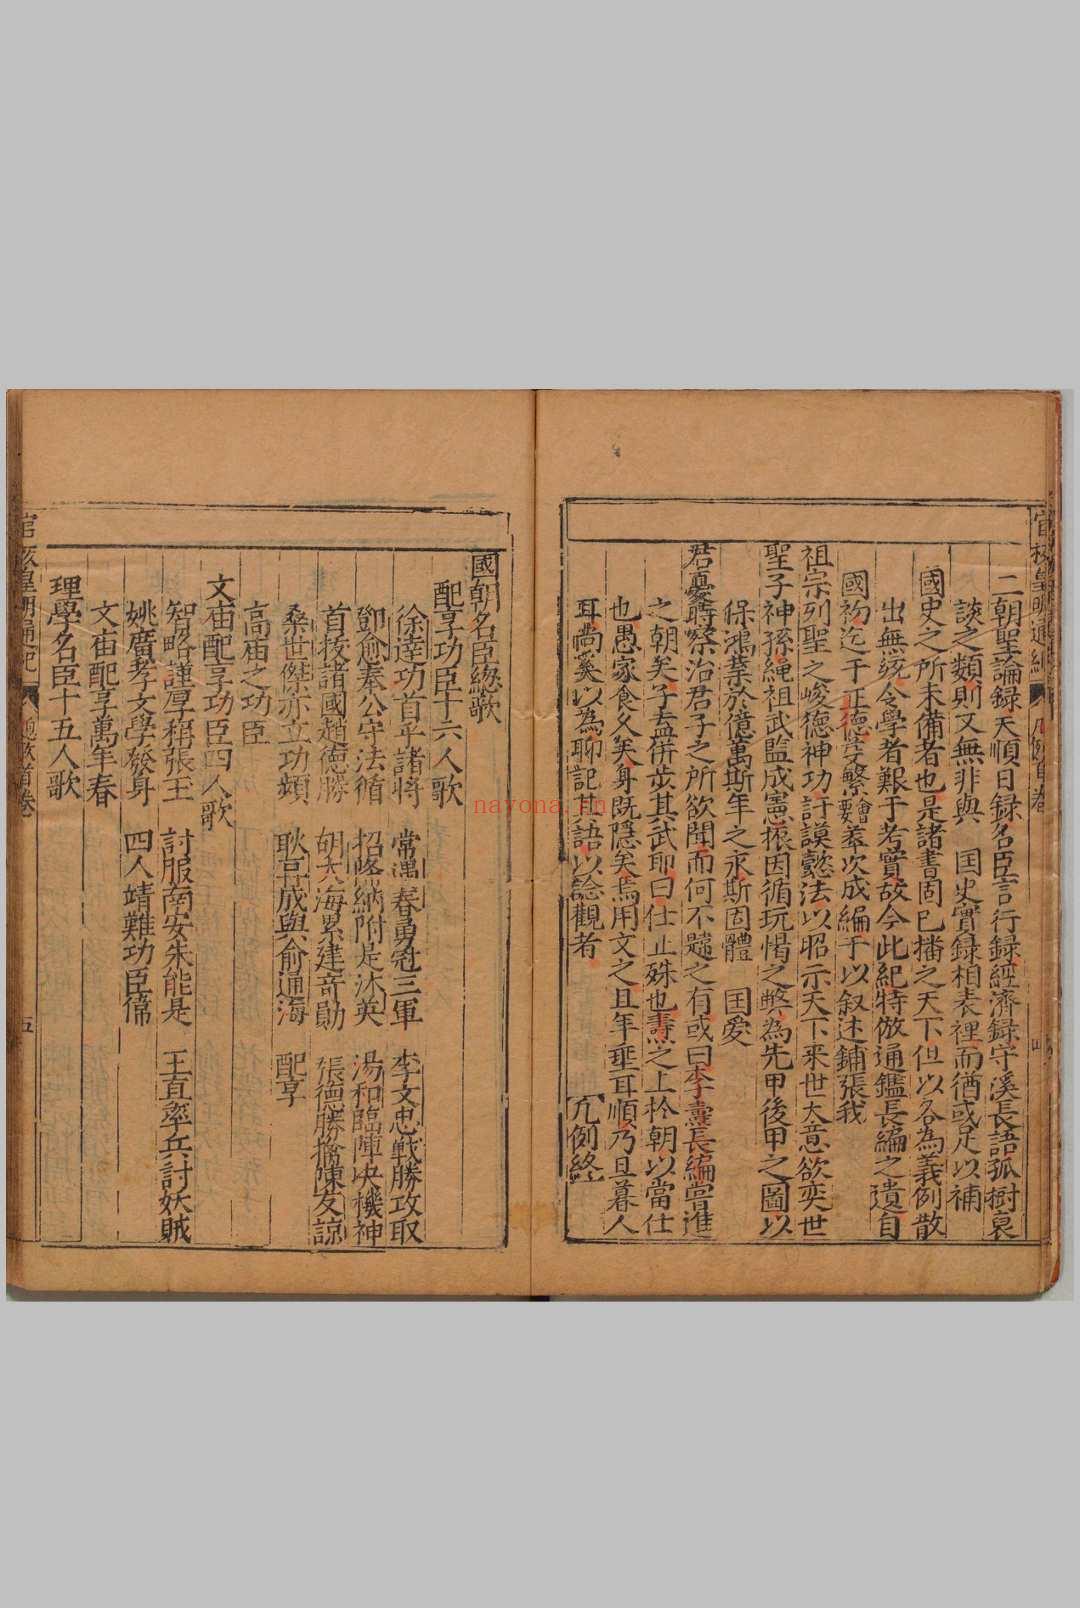 二朝聖諭録天順日録名臣言行録經濟録守溪長語孤樹裒
談之類則又無非與 国史實録相表裡而猶或足以補
國史之所未備者也是諸書固已播之天下但以各為義例散
出無統令學者艱于考實故今此紀特倣通鑑長編之遺自
國初迄于正德芟繁會要輋次成編于以叙述鋪張我
祖宗列聖之峻德神功訏謨懿法以昭示天下来世大意欲奕世
聖子神孫繩祖武監成憲振因循玩愒之弊為先甲後甲之圖以
保鴻業於億萬斯年之永斯固體 国愛
君憂時察治君子之所欲聞而何不韙之有或曰李燾長編嘗進
之朝矣子盍併苃其武耶曰仕止殊也燾之上於朝以當仕
也愚家食久矣身既隱矣焉用文之且年垂耳順乃且暮人
耳尚奚以為聊記其語以諗觀者 凡例終
國朝名臣總歌
配享功臣十六人歌
徐達功首平諸將 常遇春勇冠三軍 李文忠戰勝攻取
鄧愈奉公守法循 招降納附是沐英 湯和臨陣决機神
首授諸國趙德勝 胡大海累建奇勛 張德勝擒陳友諒
桑世傑亦立功頻 耿再成與俞通海 配享
高庙之功臣
文庙配享功臣四人歌
智略謹厚稱張玉 討服南安朱能是 王直率兵討妖賊
姚廣孝文學發身 四人靖難功臣倫
文庙配享萬年春
理學名臣十五人歌
五
nayona.cn